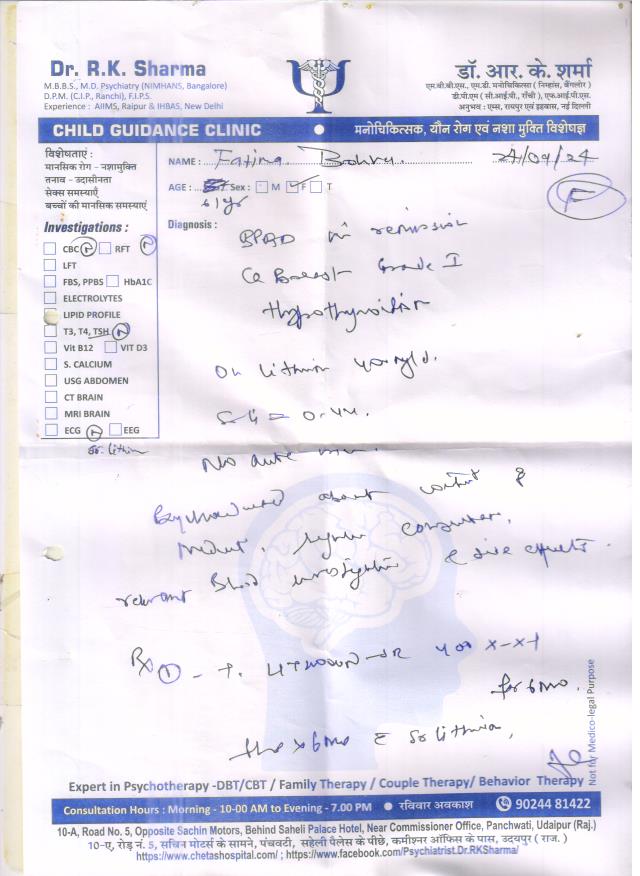 Dr. R.K. Sharma
M.B.B.S., M.D. Psychiatry (NIMHANS, Bangalore)
D.P.M. (C.I.P., Ranchi), F.I.P.S.
Experience : AIIMS, Raipur & IHBAS, New Delhi
डॉ. आर. के. शर्मा
एम.बी.बी.एस., एम.डी. मनोचिकित्सा ( निम्हांस, बैंगलोर )
डी.पी.एम ( सी.आई.पी., राँची ), एफ.आई.पी.एस.
अनुभव : एम्स, रायपुर एवं इहबास, नई दिल्ली
CHILD GUIDANCE CLINIC ● मनोचिकित्सक, यौन रोग एवं नशा मुक्ति विशेषज्ञ
विशेषताएं :
मानसिक रोग - नशामुक्ति
तनाव - उदासीनता
सेक्स समस्याएँ
बच्चों की मानसिक समस्याएं
NAME : Fatima /09/24
AGE : Sex : M ✓ F T
61 yr
F
Investigations :
CBC N RFT N
LFT
FBS, PPBS HbA1C
ELECTROLYTES
LIPID PROFILE
T3, T4, TSH N
Vit B12 VIT D3
S. CALCIUM
USG ABDOMEN
CT BRAIN
MRI BRAIN
ECG N EEG
Sr. Lithium
Diagnosis :
BPAD in remission
Ca Breast Grade I
Hypothyroidism
On lithium 400 mg/d.
S. Li = 0.44.
No
Psychoeducated about &
, regular
relevant Blood investigation & side effects.
Rx ① - T. LITHOSUN-SR 400 x-x-1
for 6 mo.
x 6 mo c Sr lithium,
Not for Medico-legal Purpose
Expert in Psychotherapy -DBT/CBT / Family Therapy / Couple Therapy/ Behavior Therapy
Consultation Hours : Morning - 10-00 AM to Evening - 7.00 PM ● रविवार अवकाश 90244 81422
10-A, Road No. 5, Opposite Sachin Motors, Behind Saheli Palace Hotel, Near Commissioner Office, Panchwati, Udaipur (Raj.)
10-ए, रोड़ नं. 5, सचिन मोटर्स के सामने, पंचवटी, सहेली पैलेस के पीछे, कमीश्नर ऑफिस के पास, उदयपुर ( राज. )
https://www.chetashospital.com/ ; https://www.facebook.com/Psychiatrist.Dr.RKSharma/